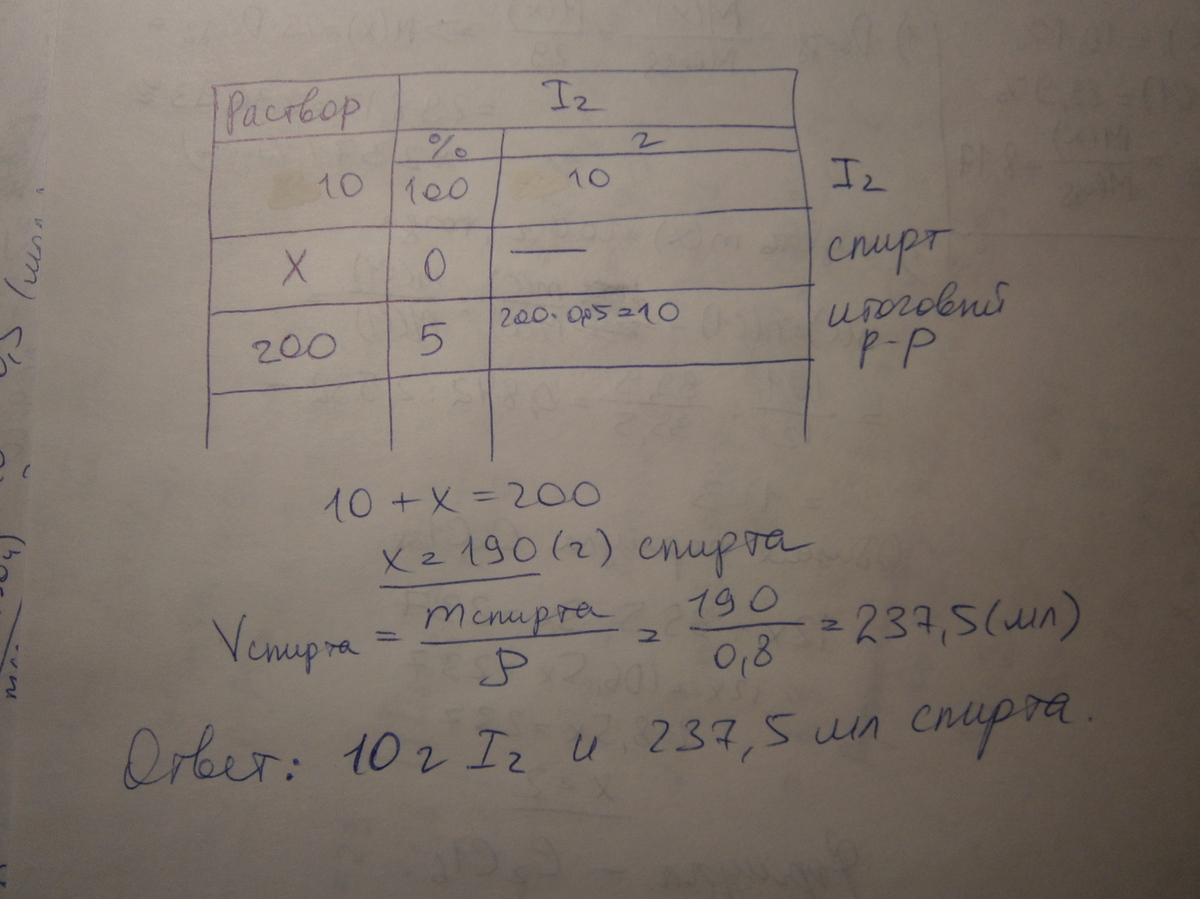 Раствор I₂
% г
10 100 10 I₂
X 0 — спирт
200 5 200·0,05=10 итоговый р-р
10 + x = 200
x = 190 (г) спирта
Vспирта = mспирта / ρ = 190 / 0,8 = 237,5 (мл)
Ответ: 10 г I₂ и 237,5 мл спирта.